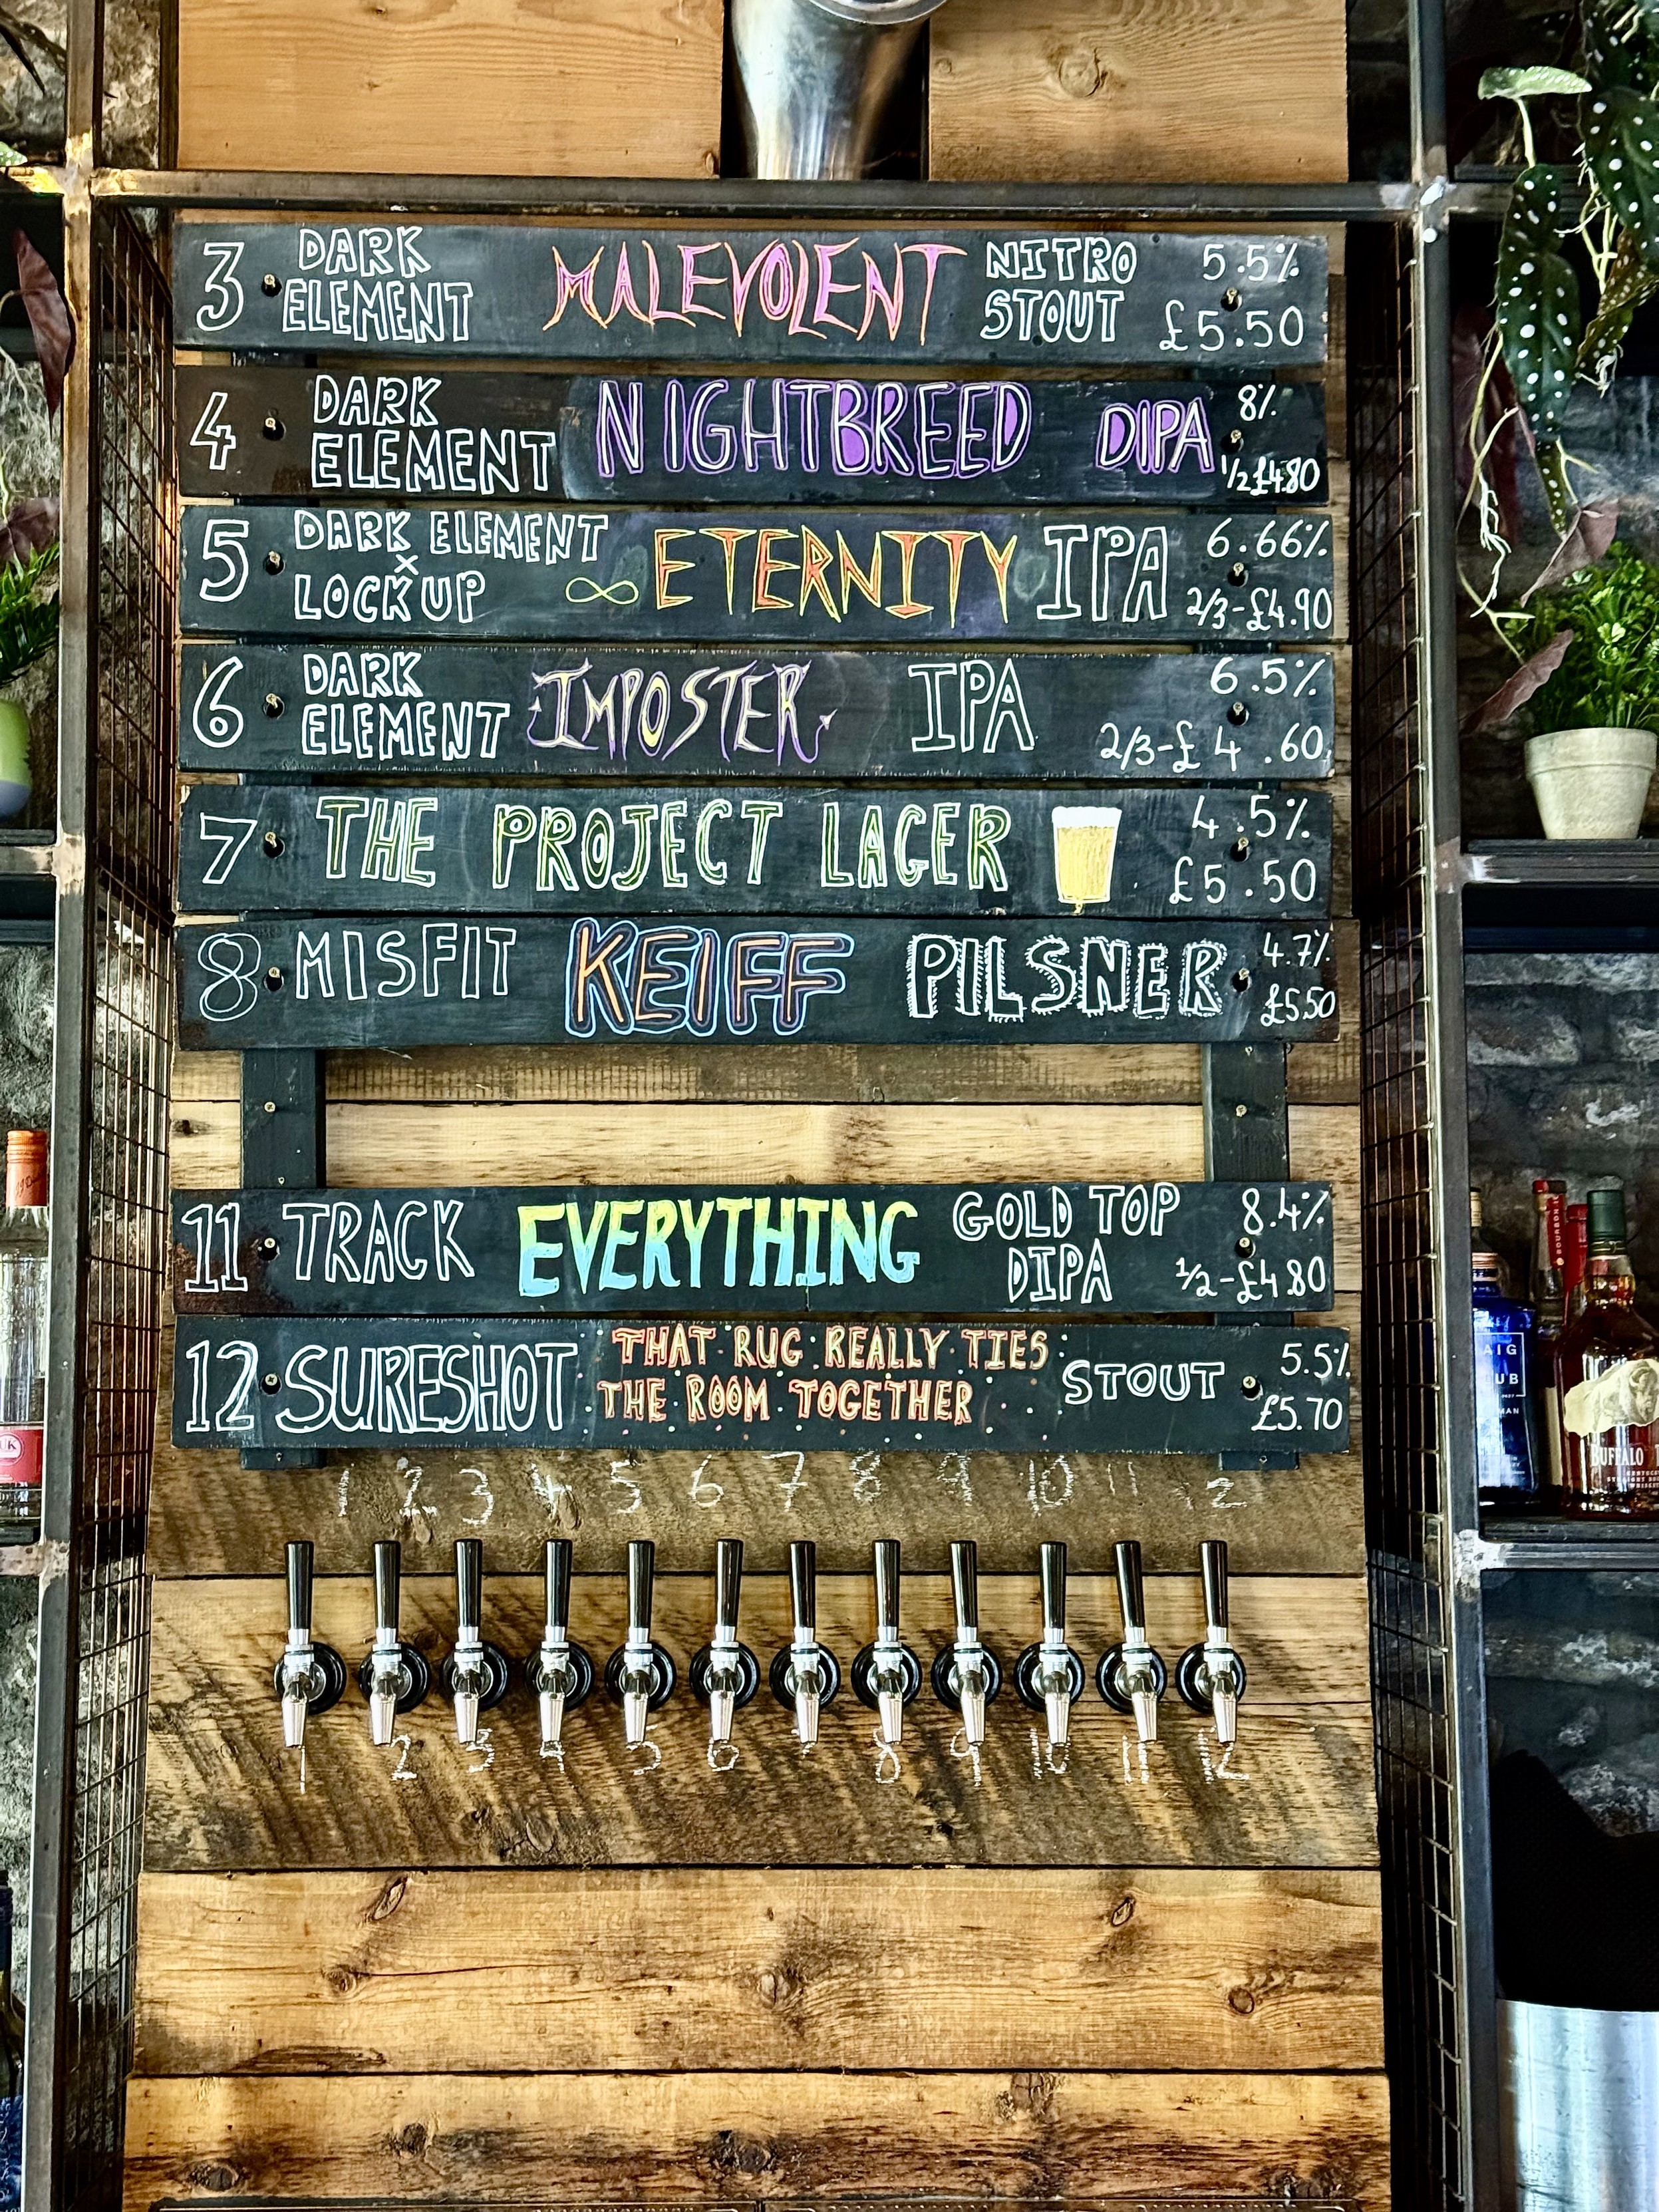 3 DARK ELEMENT MALEVOLENT NITRO STOUT 5.5% £5.50
4 DARK ELEMENT NIGHTBREED DIPA 8% 1/2 £4.80
5 DARK ELEMENT x LOCKUP ∞ ETERNITY IPA 6.66% 2/3-£4.90
6 DARK ELEMENT IMPOSTER IPA 6.5% 2/3-£4.60
7 THE PROJECT LAGER 4.5% £5.50
8 MISFIT KEIFF PILSNER 4.7% £5.50
11 TRACK EVERYTHING GOLD TOP DIPA 8.4% 1/2-£4.80
12 SURESHOT THAT RUG REALLY TIES THE ROOM TOGETHER STOUT 5.5% £5.70
1 2 3 4 5 6 7 8 9 10 11 12
1 2 3 4 5 6 7 8 9 10 11 12
AIG
UB
BUFFALO